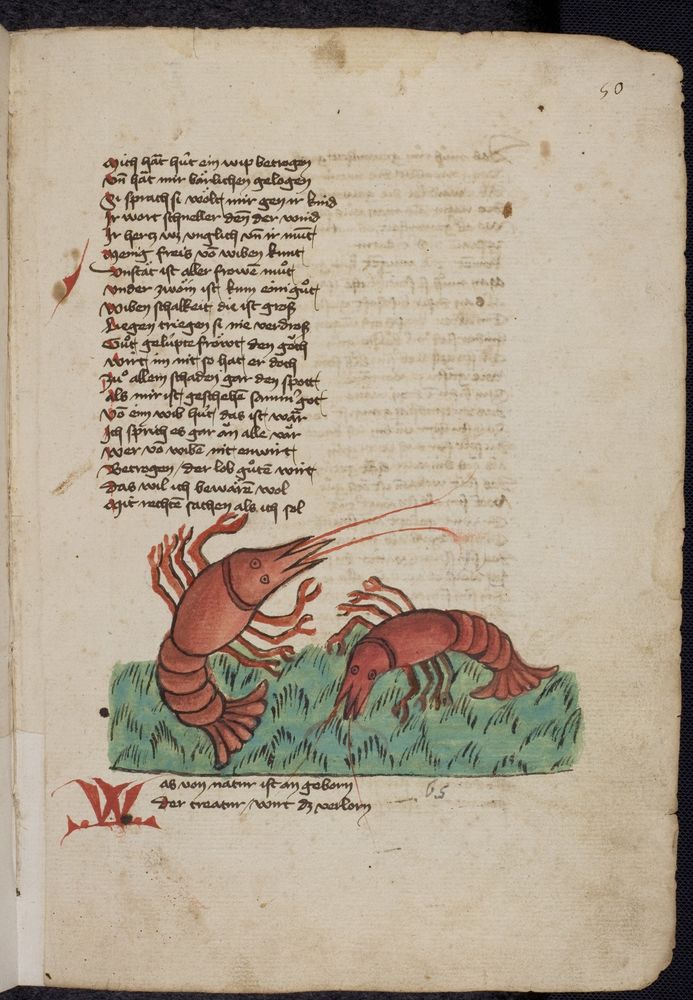 50
Mich hāt hu̍t ein wip betrogen
Vn̄ hāt mir bärlichen gelogen
Si sprach si wölt mir gen ir kind
Ir wort schneller den̄ der wind
Ir hertz wz vnglich vn̄ ir mu̍nt
Menig freis vō wiben kunt
Vnstät ist aller frowē mu̍t
Vnder zwöin ist kum eini gu̍t
Wiben schalkeit die ist groß
Liegen triegen si nie verdroß
Gu̍t gelüpte fröwt den göch
Wirt im nit so hat er doch
Zuͦ allem schaden gar den spott
Als mir ist geschehē sāmir got
Vō eim wib hu̍t das ist wär
Ich sprich es gar än alle vär
Wer vō wibē nit enwirt
Betrogen / der lob gu̍tē wirt
Das wil ich bewären wol
Mit rechtē sachen als ich sol
Was von natur ist an geborn
Der creatur / wirt dz verlorn
65